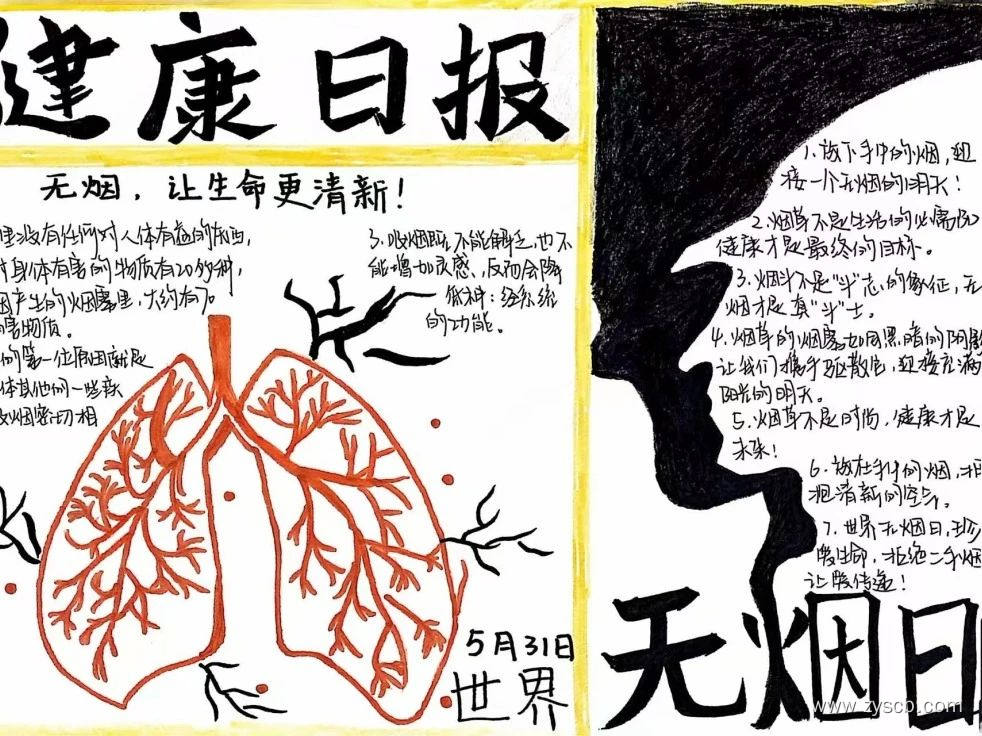 健康日报
无烟，让生命更清新！
里没有任何对人体有益的东西，
身体有害的物质有20多种，
产生的烟雾里，大约有70
害物质。
的第一位原因就是
体其他的一些疾
吸烟密切相
3、吸烟既不能解乏，也不
能增加灵感、反而会降
低神经系统
的功能。
5月31日
世界
1、放下手中的烟，迎
接一个无烟的明天！
2、烟草不是生活的必需品
健康才是最终的目标。
3、烟斗不是"斗"志的象征，无
烟才是真"斗"士。
4、烟草的烟雾如同黑暗的阴影
让我们携手驱散它，迎接充满
阳光的明天。
5、烟草不是时尚，健康才是
未来！
6、放在手们的烟，拥
抱清新的空气。
7、世界无烟日，珍
爱生命，拒绝二手烟
让爱传递！
无烟日
www.zyscb.com